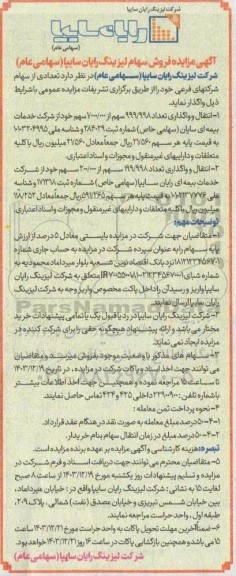 شرکت لیزینگ رایان سایپا
رایان سایپا
(سهامی عام)
آگهی مزایده فروش سهام لیزینگ رایان سایپا (سهامی عام)
شرکت لیزینگ رایان سایپا (سهامی عام) در نظر دارد تعدادی از سهام
شرکتهای فرعی خود را از طریق برگزاری تشریفات مزایده عمومی با شرایط
ذیل واگذار نماید.
۱- انتقال و واگذاری تعداد ۹۹۹/۹۹۸ سهم از ۱/۰۰۰/۰۰۰ سهم خود از شرکت خدمات
بیمه ای سایان (سهامی خاص) شماره ثبت ۲۸۴۰۲۹ و شناسه ملی
به قیمت پایه هر سهم ۲۷٬۵۶۰ ریال جمعاً معادل ۲۷٬۵۶۰ میلیون ریال با کلیه
متعلقات و دارایی‌های غیرمنقول و مجوزات و اسناد اعتباری.
۲- انتقال و واگذاری تعداد سهم از سهم خود از شرکت
خدمات بیمه ای رایان سایپا (سهامی خاص) شماره ثبت و شناسه
ملی به قیمت پایه هر سهم ریال جمعاً معادل
میلیون ریال با کلیه متعلقات و دارایی‌های غیرمنقول و مجوزات و اسناد اعتباری.
توضیحات مهم:
۱- متقاضیان جهت شرکت در مزایده بایستی معادل ۵ درصد از ارزش
پایه سهام را به عنوان سپرده شرکت در مزایده به حساب جاری شماره
نزد بانک اقتصاد نوین شعبه بلوار میرداماد محدودیه به
شماره شبای متعلق به شرکت لیزینگ رایان
سایپا واریز و رسید آن را داخل پاکت مخصوص واریز وجه به شرکت لیزینگ
رایان سایپا ارسال نمایند.
۲- شرکت لیزینگ رایان سایپا در رد یا قبول یک یا تمامی پیشنهادات خرید
مختار می باشد و ارائه پیشنهاد هیچگونه حقی را برای شرکت کننده در
مزایده ایجاد نمی نماید.
۳- سهام های مذکور با وضعیت موجود بفروش میرسد و متقاضیان
می توانند جهت اخذ اسناد و پاکات شرکت در مزایده، در تاریخ ۱۴۰۳/۱۲/۱۹
تا ساعت ۱۵ مراجعه نموده و همچنین جهت اخذ اطلاعات بیشتر
با شماره تلفن: داخلی ۴۲۵ و ۴۲۴ تماس حاصل نمایند.
۴- نحوه پرداخت ثمن معامله:
۴-۱- ۵۰ درصد مبلغ معامله به صورت نقد در هنگام عقد قرارداد.
۴-۲- ۵۰ درصد مبلغ در زمان انتقال سهام بنام خریدار.
تبصره: هزینه کارشناسی و آگهی مزایده بر عهده برنده مزایده است.
۵- متقاضیان محترم می توانند جهت دریافت اسناد و فرم شرکت در
مزایده و تسلیم پیشنهادات روز یکشنبه مورخ ۱۴۰۳/۱۲/۱۹ از ساعت ۸ صبح
لغایت ۱۵ به نشانی: شرکت لیزینگ رایان سایپا واقع در: خیابان میرداماد،
بین خیابان شمس تبریزی و خیابان مصدق (نفت) شمالی، پلاک ۲۰۹،
طبقه اول، واحد حراست مراجعه نمایند.
۶- ضمناً آخرین مهلت تحویل پاکات به واحد حراست مورخ ۱۴۰۳/۱۲/۲۱ ساعت
۱۵ می باشد و همچنین بازگشایی پاکات در ساعت ۱۶ روز ۱۴۰۳/۱۲/۲۱ خواهد بود.
شرکت لیزینگ رایان سایپا (سهامی عام)